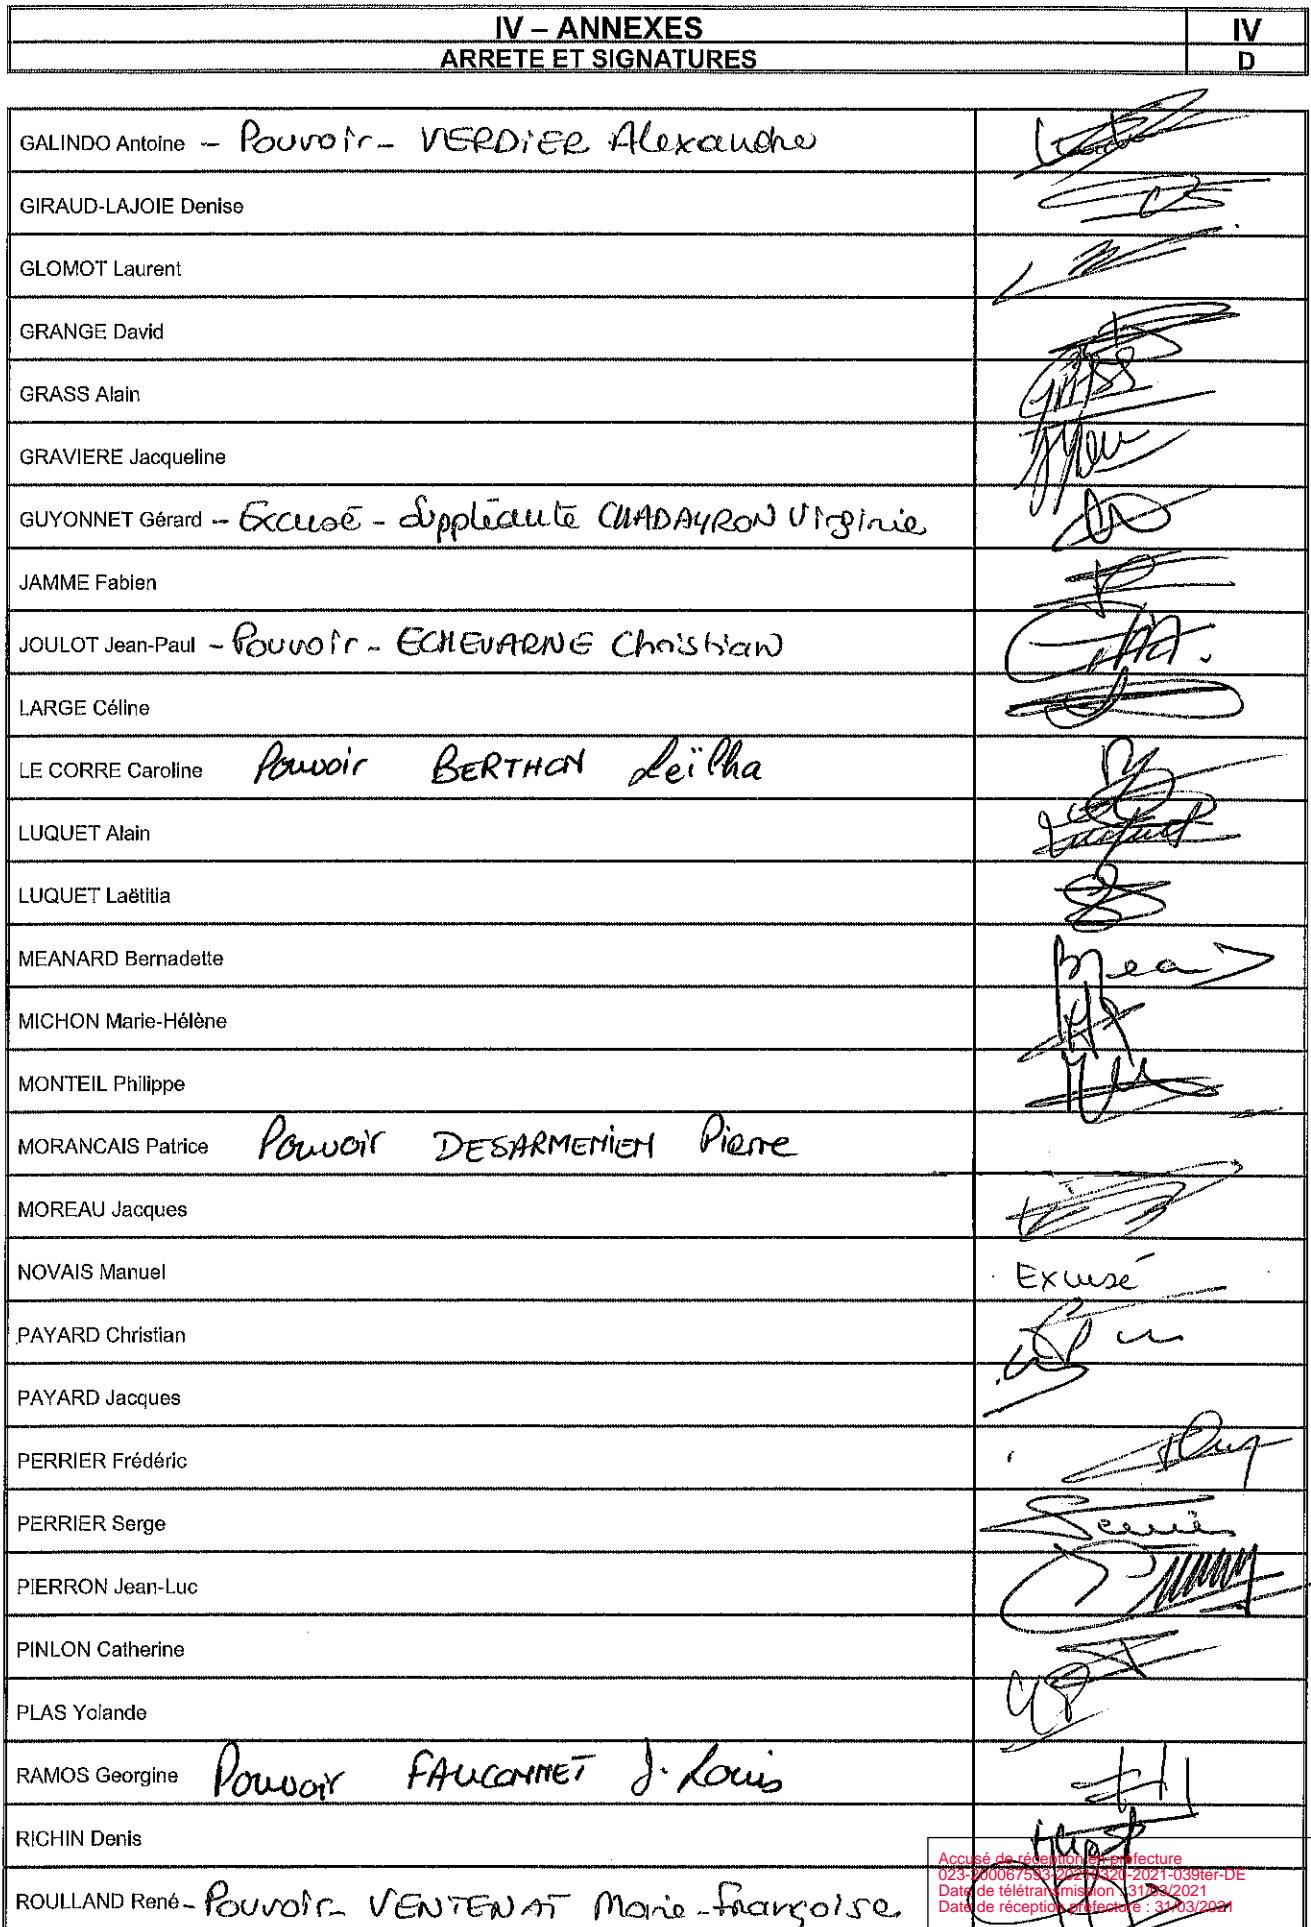 IV – ANNEXES
IV
ARRETE ET SIGNATURES
D
GALINDO Antoine - Pouvoir - VERDIER Alexandre
GIRAUD-LAJOIE Denise
GLOMOT Laurent
GRANGE David
GRASS Alain
GRAVIERE Jacqueline
GUYONNET Gérard - Excusé - Suppléante CHADAYRON Virginie
JAMME Fabien
JOULOT Jean-Paul - Pouvoir - ECHEVARNE Christian
LARGE Céline
LE CORRE Caroline Pouvoir BERTHON Leïlha
LUQUET Alain
LUQUET Laëtitia
MEANARD Bernadette
MICHON Marie-Hélène
MONTEIL Philippe
MORANCAIS Patrice Pouvoir DESARMENIEN Pierre
MOREAU Jacques
NOVAIS Manuel Excusé
PAYARD Christian
PAYARD Jacques
PERRIER Frédéric
PERRIER Serge
PIERRON Jean-Luc
PINLON Catherine
PLAS Yolande
RAMOS Georgine Pouvoir FAUCONNET J. Louis
RICHIN Denis
Accusé de réception en préfecture
023-200067593-20210320-2021-039ter-DE
Date de télétransmission : 31/03/2021
Date de réception préfecture : 31/03/2021
ROULLAND René - Pouvoir - VENTENAT Marie-françoise